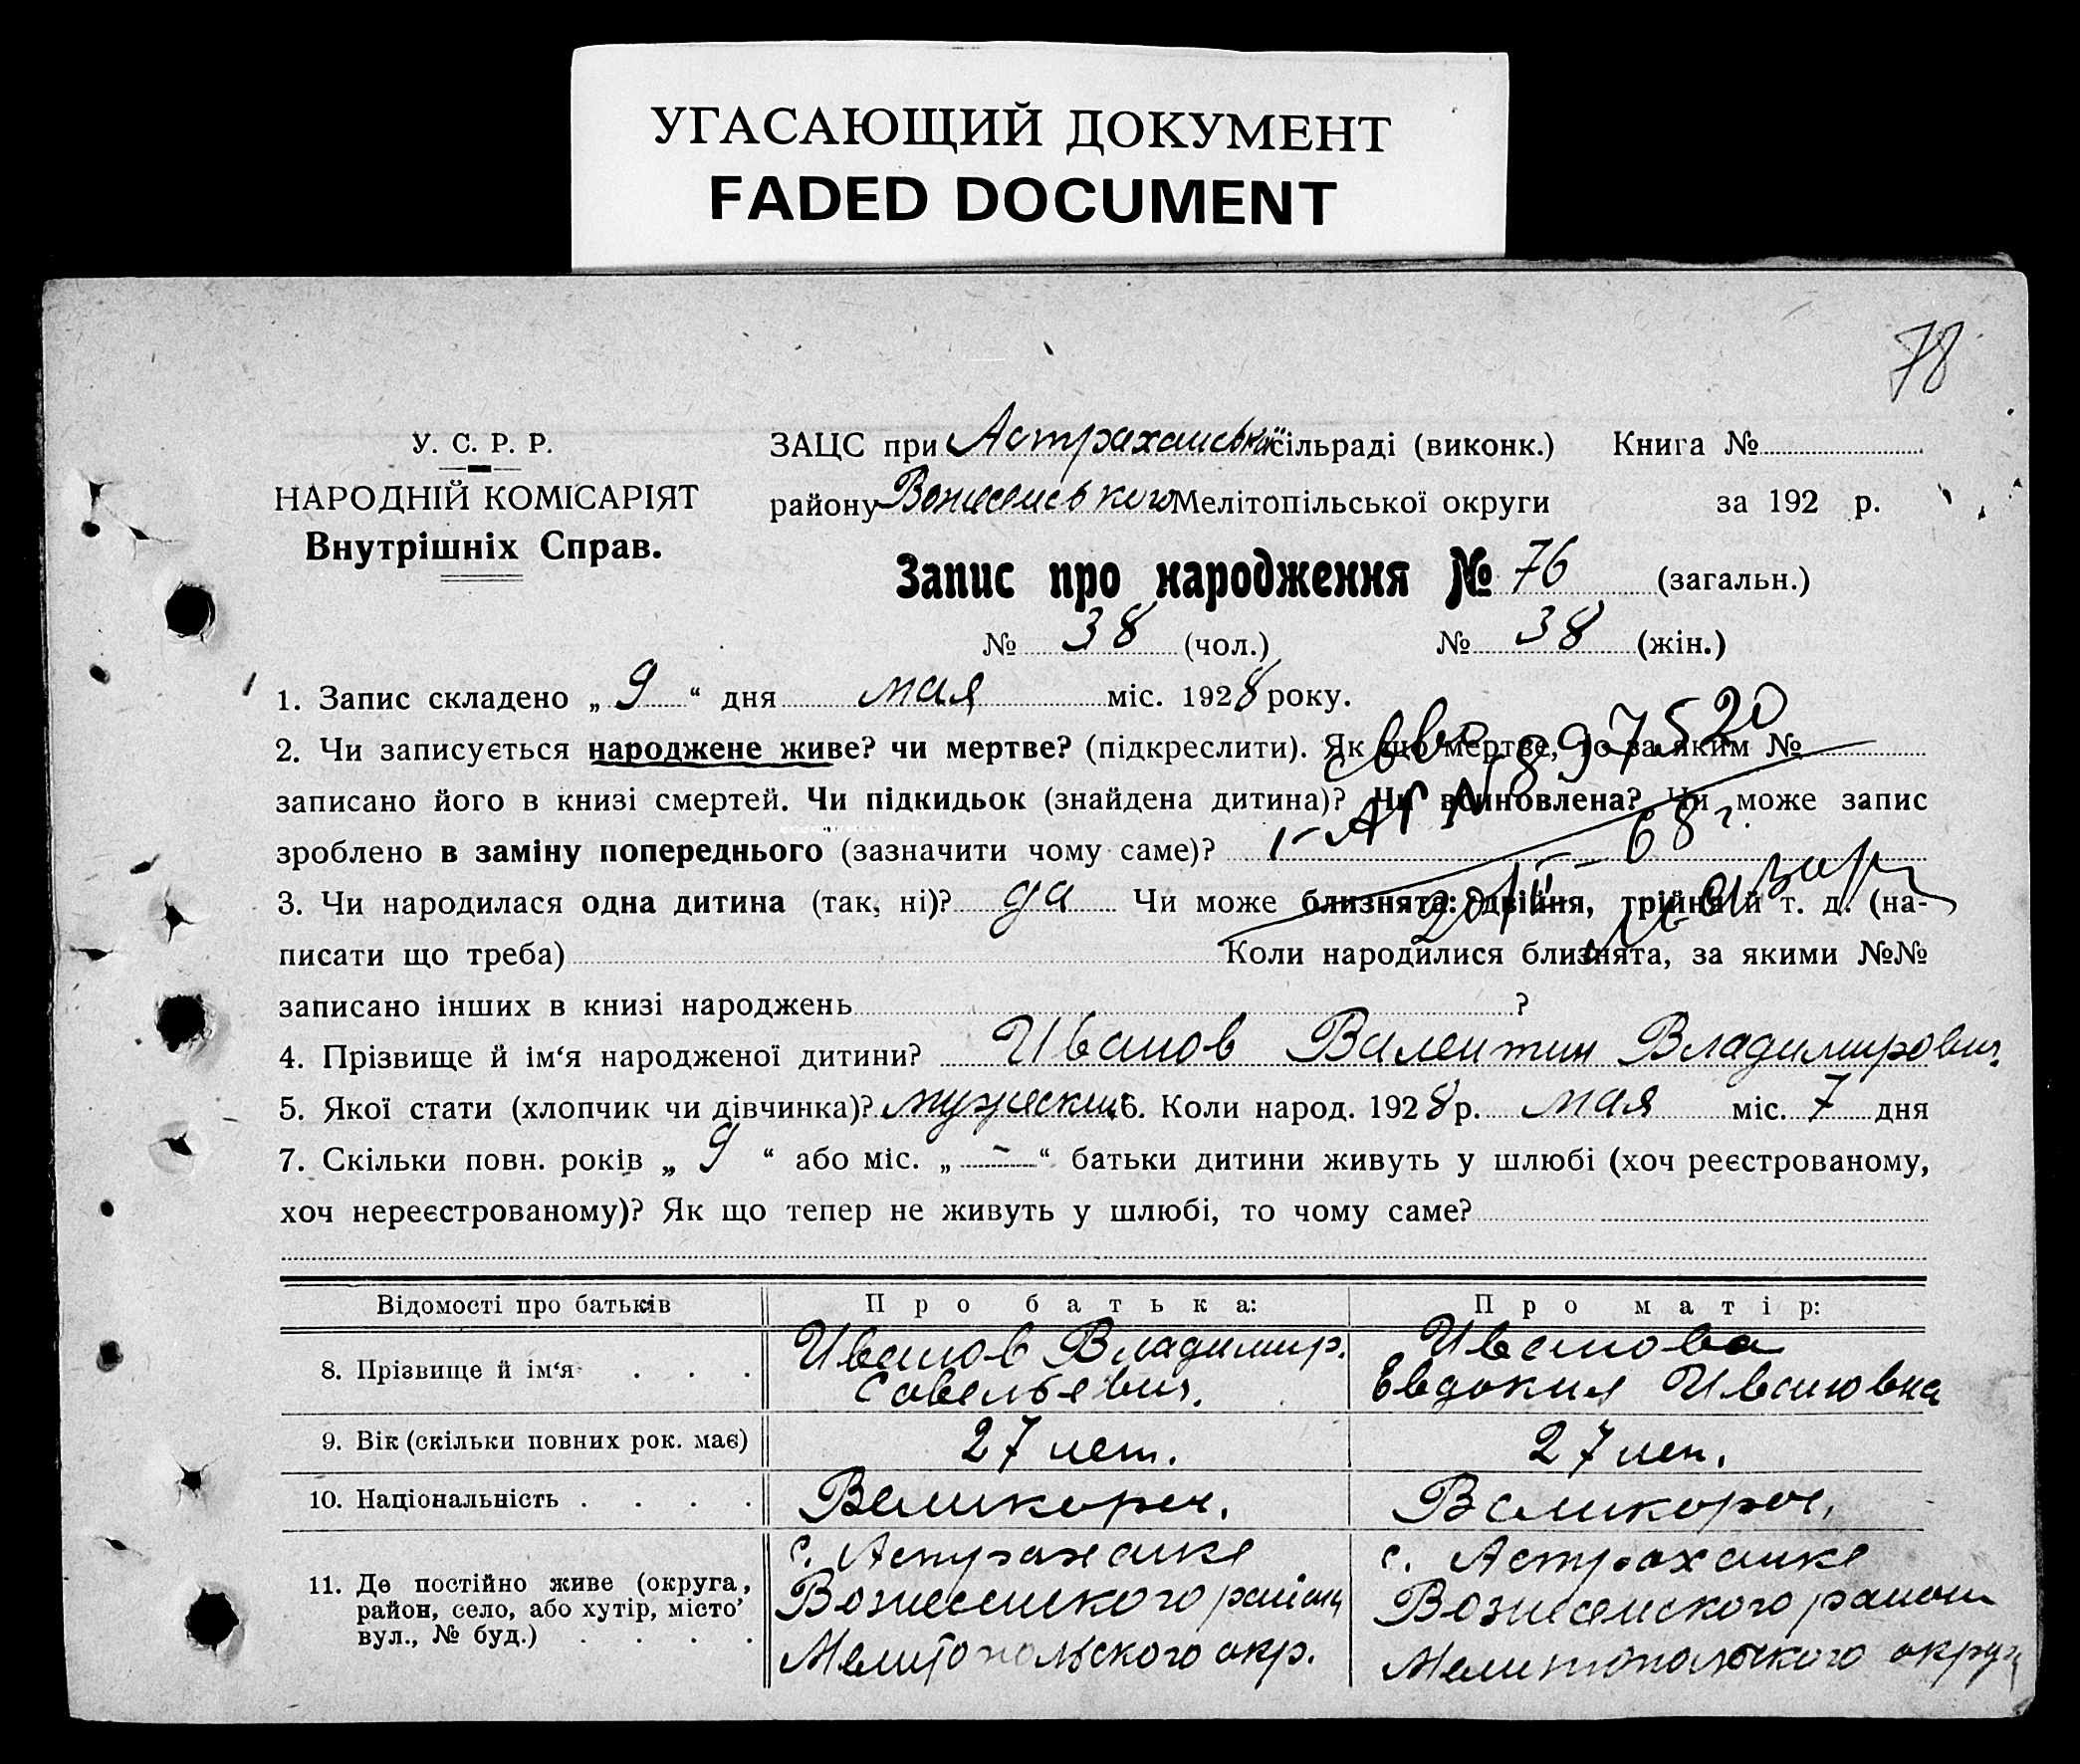 УГАСАЮЩИЙ ДОКУМЕНТ
FADED DOCUMENT
78
У. С. Р. Р.
НАРОДНІЙ КОМІСАРІЯТ
Внутрішніх Справ.
ЗАЦС при Астраханській сільраді (виконк.) Книга №
району Вознесенського Мелітопільської округи за 192 р.
Запис про народження № 76 (загальн.)
№ 38 (чол.) № 38 (жін.)
1. Запис складено „ 9 “ дня мая міс. 1928 року.
2. Чи записується народжене живе? чи мертве? (підкреслити). Як що мертве, то за яким №
записано його в книзі смертей. Чи підкидьок (знайдена дитина)? Чи всиновлена? Чи може запис
зроблено в заміну попереднього (зазначити чому саме)?
897520
68 г.
3. Чи народилася одна дитина (так, ні)? да Чи може близнята: двійня, трійня й т. д. (на-
писати що треба) Коли народилися близнята, за якими №№
записано інших в книзі народжень ?
4. Прізвище й ім‘я народженої дитини? Иванов Валентин Владимирович
5. Якої стати (хлопчик чи дівчинка)? мужеский 6. Коли народ. 1928 р. мая міс. 7 дня
7. Скільки повн. років „ 9 “ або міс. „ - “ батьки дитини живуть у шлюбі (хоч реєстрованому,
хоч нереєстрованому)? Як що тепер не живуть у шлюбі, то чому саме?
Відомості про батьків Про батька: Про матір:
8. Прізвище й ім‘я Иванов Владимир. Савельевич. Иванова Евдокия Ивановна
9. Вік (скільки повних рок. має) 27 лет. 27 лет.
10. Національність Великорос. Великорос.
11. Де постійно живе (округа,
район, село, або хутір, місто,
вул., № буд.)
с. Астраханке
Вознесенского района
Мелитопольского окр.
с. Астраханке
Вознесенского района
Мелитопольского округа